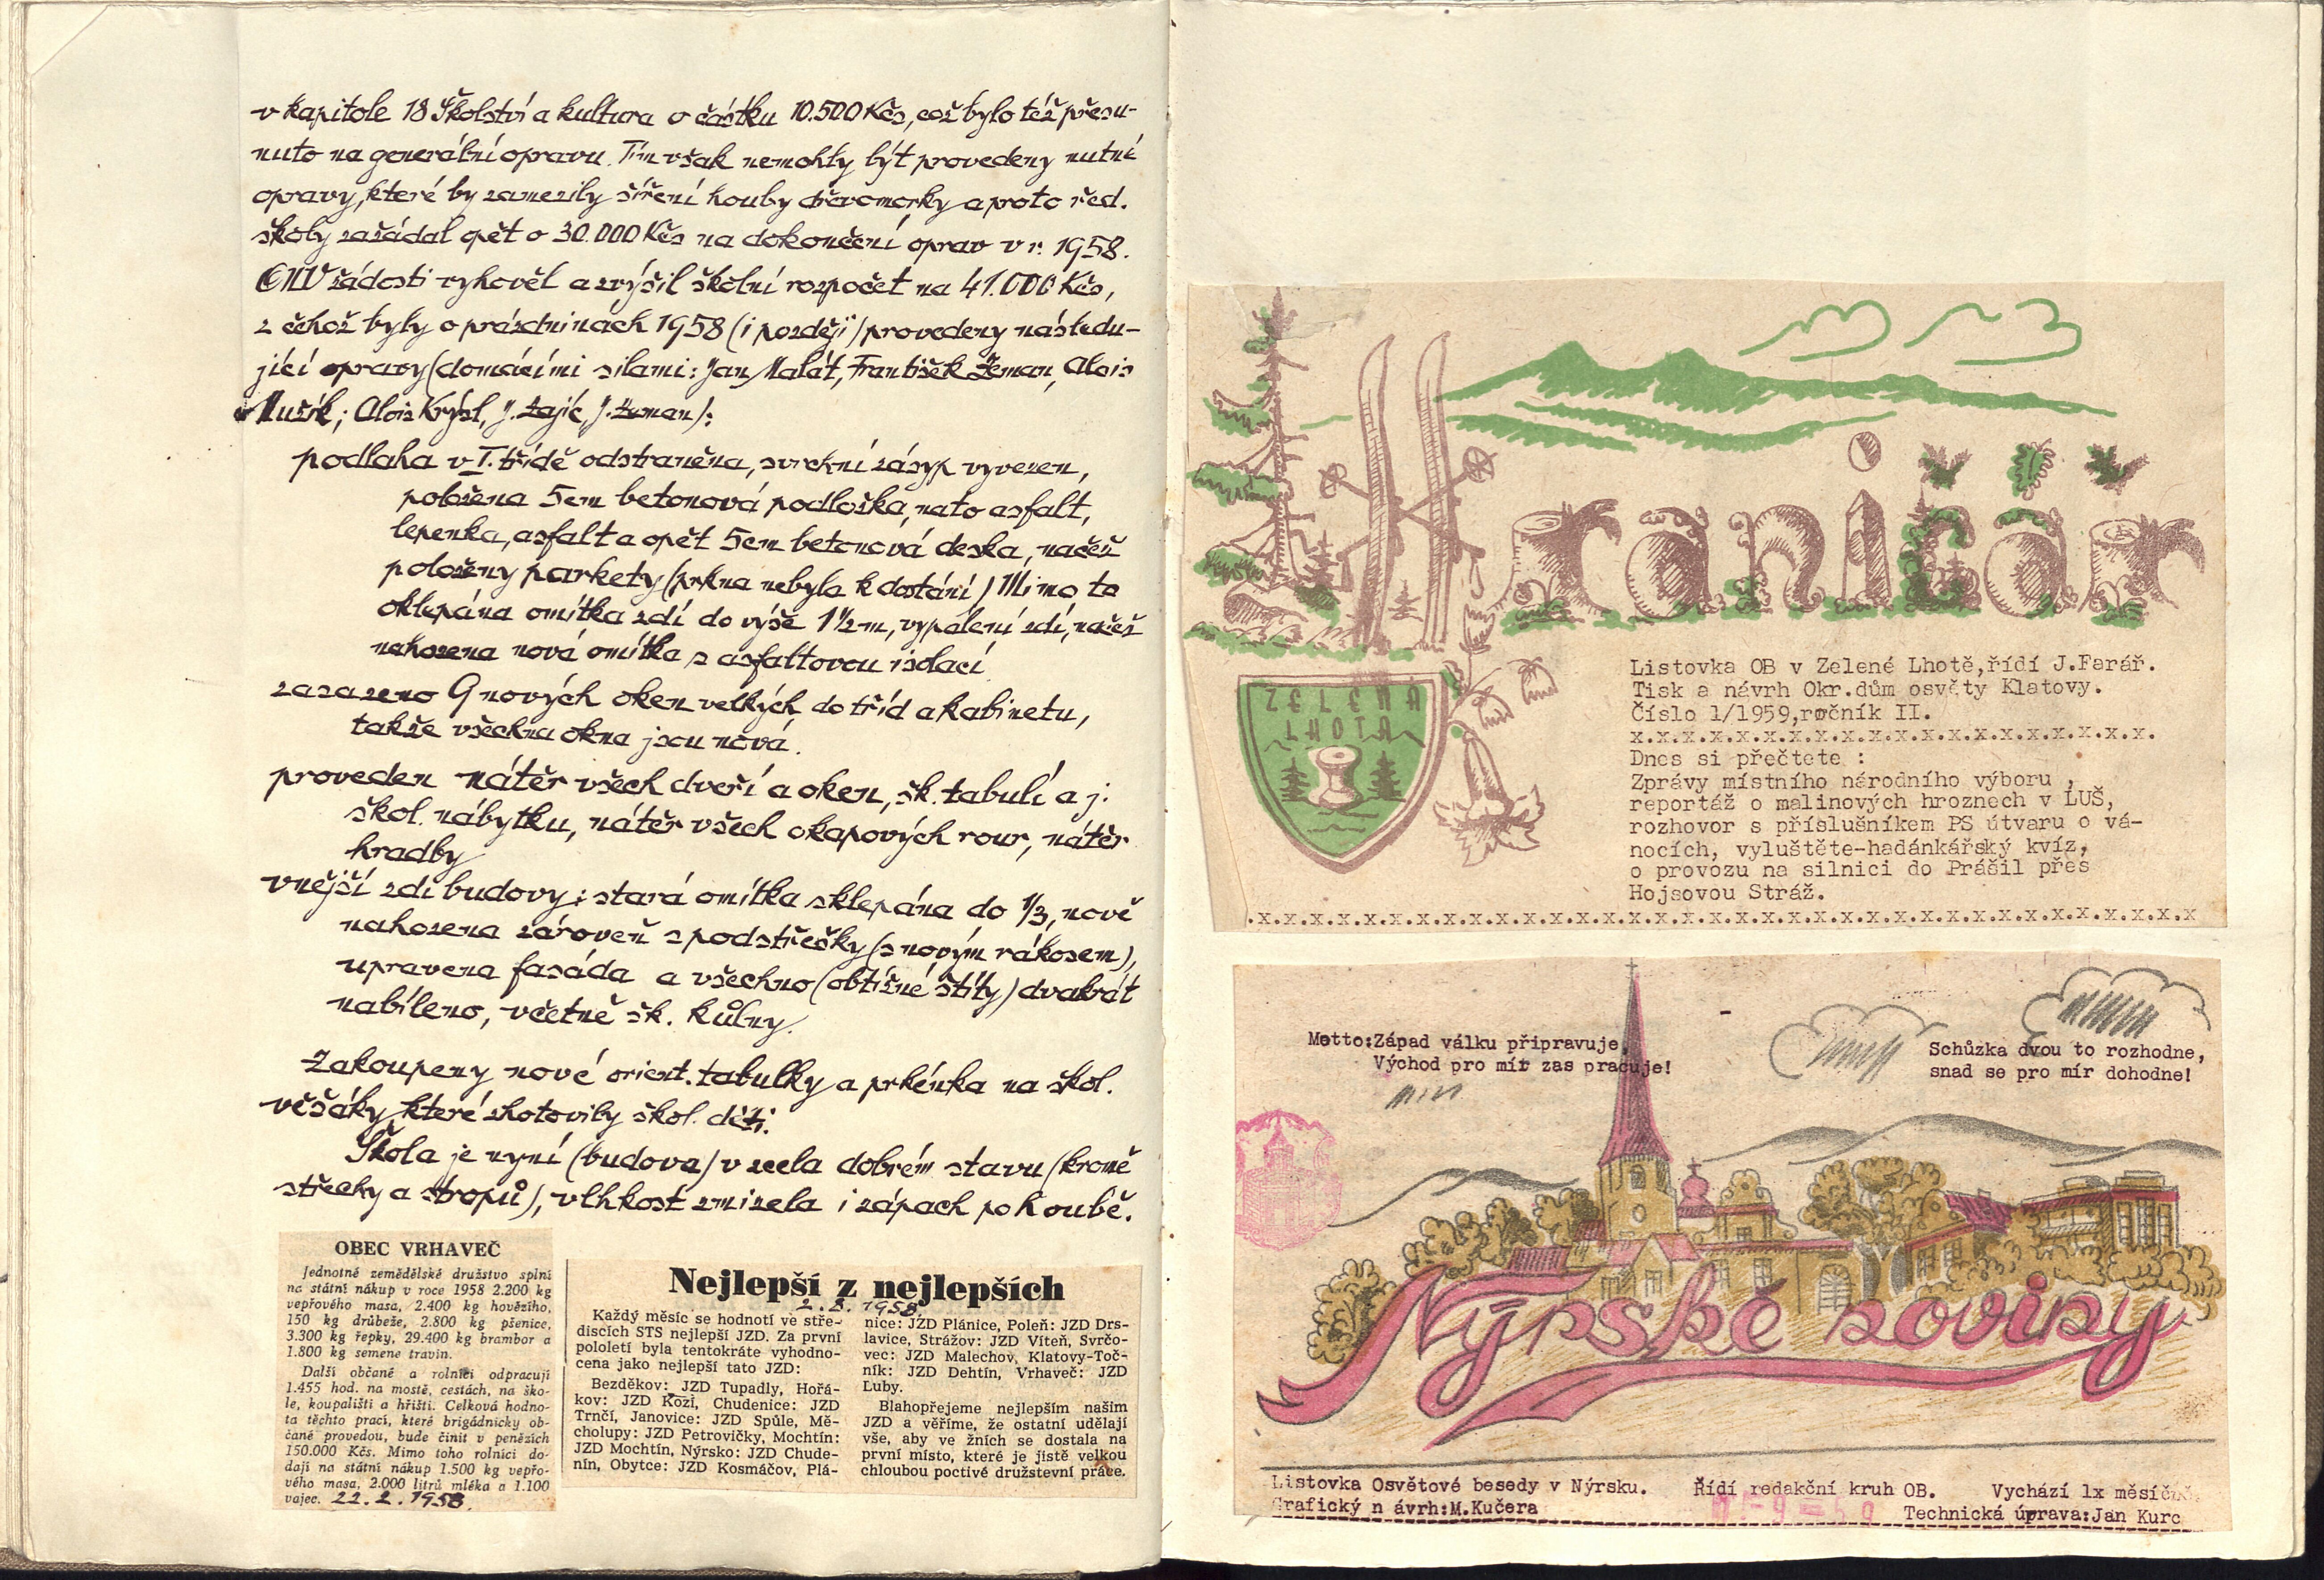 v kapitole 18 Školství a kultura o částku 10.500 Kčs, což bylo též přesu-
nuto na generální opravu. Tím však nemohly být provedeny nutné
opravy, které by zamezily šíření houby dřevomorky a proto řed.
školy zažádal opět o 30.000 Kčs na dokončení oprav v r. 1958.
ONV žádosti vyhověl a zvýšil školní rozpočet na 41.000 Kčs,
z čehož byly o prázdninách 1958 (i později) provedeny následu-
jící opravy (domácími silami: Jan Malát, František Zeman, Alois
Mužík; Alois Krýsl, J. Zajíc, J. Zeman):
podlaha v I. třídě odstraněna, svrchní zásyp vyvezen,
položena 5cm betonová podložka, na to asfalt,
lepenka, asfalt a opět 5cm betonová deska, načež
položeny parkety (prkna nebyla k dostání) Mimo to
oklepána omítka zdí do výše 1 1/2 m, vypálení zdí, načež
nahozena nová omítka s asfaltovou isolací
zasazeno 9 nových oken velkých do tříd a kabinetu,
takže všechna okna jsou nová.
proveden nátěr všech dveří a oken, šk. tabulí a j.
škol. nábytku, nátěr všech okapových rour, nátěr
hradby
vnější zdi budovy: stará omítka sklepána do 1/3, nově
nahozena zároveň s podstřešky (s novým rákosem),
upravena fasáda a všechno (obtížné štíty) dvakrát
nabíleno, včetně šk. kůlny.
Zakoupeny nové orient. tabulky a prkénka na škol.
věšáky, které zhotovily škol. děti.
Škola je nyní (budova) v zcela dobrém stavu (kromě
střechy a stropů), vlhkost zmizela i zápach po houbě.
OBEC VRHAVEČ
Jednotné zemědělské družstvo splní
na státní nákup v roce 1958 2.200 kg
vepřového masa, 2.400 kg hovězího,
150 kg drůbeže, 2.800 kg pšenice,
3.300 kg řepky, 29.400 kg brambor a
1.800 kg semene travin.
Další občané a rolníci odpracují
1.455 hod. na mostě, cestách, na ško-
le, koupališti a hřišti. Celková hodno-
ta těchto prací, které brigádnicky ob-
čané provedou, bude činit v penězích
150.000 Kčs. Mimo toho rolníci do-
dají na státní nákup 1.500 kg vepřo-
vého masa, 2.000 litrů mléka a 1.100
vajec. 22.2.1958.
Nejlepší z nejlepších
2.8.1958
Každý měsíc se hodnotí ve stře-
discích STS nejlepší JZD. Za první
pololetí byla tentokráte vyhodno-
cena jako nejlepší tato JZD:
Bezděkov: JZD Tupadly, Hořá-
kov: JZD Kozí, Chudenice: JZD
Trnčí, Janovice: JZD Spůle, Mě-
cholupy: JZD Petrovičky, Mochtín:
JZD Mochtín, Nýrsko: JZD Chude-
nín, Obytce: JZD Kosmáčov, Plá-
nice: JZD Plánice, Poleň: JZD Drs-
lavice, Strážov: JZD Víteň, Svrčo-
vec: JZD Malechov, Klatovy-Toč-
ník: JZD Dehtín, Vrhaveč: JZD
Luby.
Blahopřejeme nejlepším našim
JZD a věříme, že ostatní udělají
vše, aby ve žních se dostala na
první místo, které je jistě velkou
chloubou poctivé družstevní práce.
Hraničář
Listovka OB v Zelené Lhotě,řídí J.Farář.
Tisk a návrh Okr.dům osvěty Klatovy.
Číslo 1/1959,ročník II.
x.x.x.x.x.x.x.x.x.x.x.x.x.x.x.x.x.x.x.x.
Dnes si přečtete :
Zprávy místního národního výboru ,
reportáž o malinových hroznech v LUŠ,
rozhovor s příslušníkem PS útvaru o vá-
nocích, vyluštěte-hadánkářský kvíz,
o provozu na silnici do Prášil přes
Hojsovou Stráž.
.x.x.x.x.x.x.x.x.x.x.x.x.x.x.x.x.x.x.x.x.x.x.x.x.x.x.x.x.x.x.x.x.x.x.x.x
Motto:Západ válku připravuje,
Východ pro mír zas pracuje!
Schůzka dvou to rozhodne,
snad se pro mír dohodne!
Nýrské noviny
Listovka Osvětové besedy v Nýrsku. Řídí redakční kruh OB. Vychází 1x měsíčně
Grafický n ávrh:M.Kučera
Technická úprava:Jan Kurc